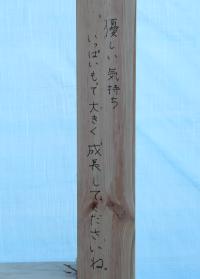 優しい気持ち
いっぱいもって大きく成長してくださいね。